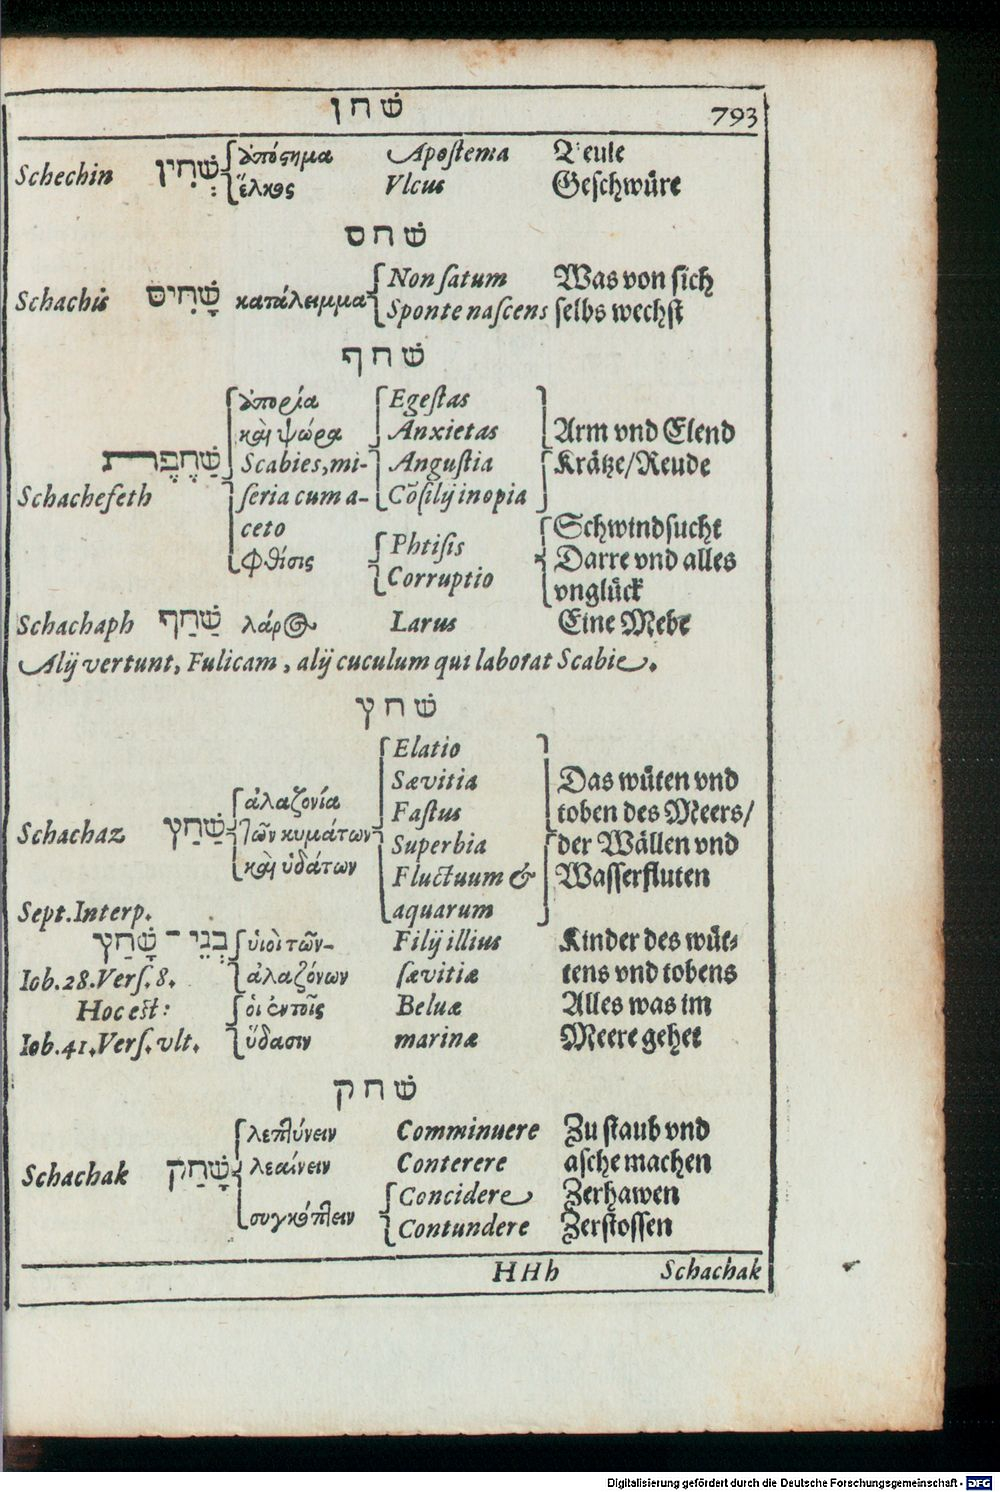 שׁחן 793
Schechin שְׁחִין ἀπόστημα Apostema Beule
ἕλκος Vlcus Geschwüre
שׁחס
Schachis שָׁחִיס καταλειμμα Non satum Was von sich
Sponte nascens selbs wechst
שׁחף
ἀπορία Egestas
καὶ ψώρα Anxietas Arm vnd Elend
שַׁחֶפֶת Scabies, mi- Angustia Krätze/Reude
Schachefeth seria cum a- Cõsilij inopia
ceto Schwindsucht
φθίσις Phtisis Darre vnd alles
Corruptio vnglück
Schachaph שַׁחַף λάρος Larus Eine Mebe
Alij vertunt, Fulicam, alij cuculum qui laborat Scabie.
שׁחץ
Elatio
Sævitia Das wüten vnd
ἀλαζονία Fastus toben des Meers/
Schachaz שַׁחַץ τῶν κυμάτων Superbia der Wällen vnd
καὶ ὑδάτων Fluctuum & Wasserfluten
Sept. Interp. aquarum
בְּנֵי־שָׁחַץ ὑιοὶ τῶν- Filij illius Kinder des wüt-
Iob. 28. Vers. 8. ἀλαζόνων sævitiæ tens vnd tobens
Hoc est: ὁι ἐν τοῖς Beluæ Alles was im
Iob. 41. Vers. vlt. ὕδασιν marinæ Meere gehet
שׁחק
λεπτύνειν Comminuere Zu staub vnd
Schachak שָׁחַק λεαίνειν Conterere asche machen
Concidere Zerhawen
συγκόπτειν Contundere Zerstossen
HHh Schachak
Digitalisierung gefördert durch die Deutsche Forschungsgemeinschaft - DFG